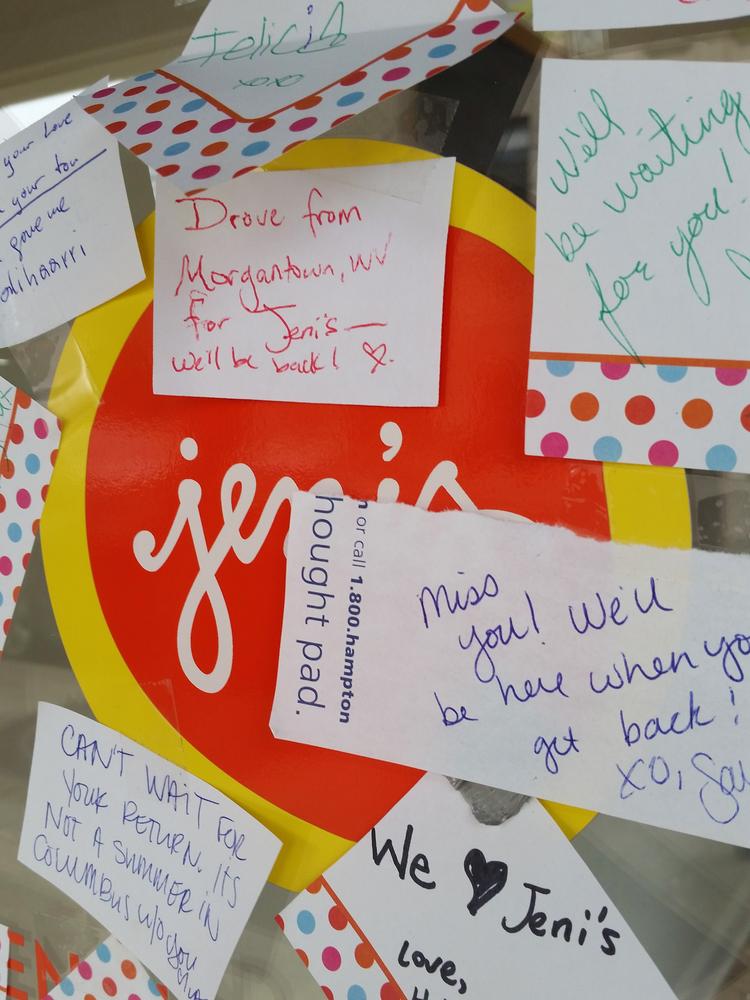 Felicia
xoxo
your love
your tou
gave me
Drove from
Morgantown, WV
for Jeni's —
we'll be back! ♡.
We'll
be waiting
for you!
jeni's
or call 1.800.hampton
hought pad.
Miss
you! We'll
be here when yo
get back!
xo, Sau
CAN'T WAIT FOR
YOUR RETURN. ITS
NOT A SUMMER IN
COLUMBUS w/o you
We ♥ Jeni's
Love,
EN